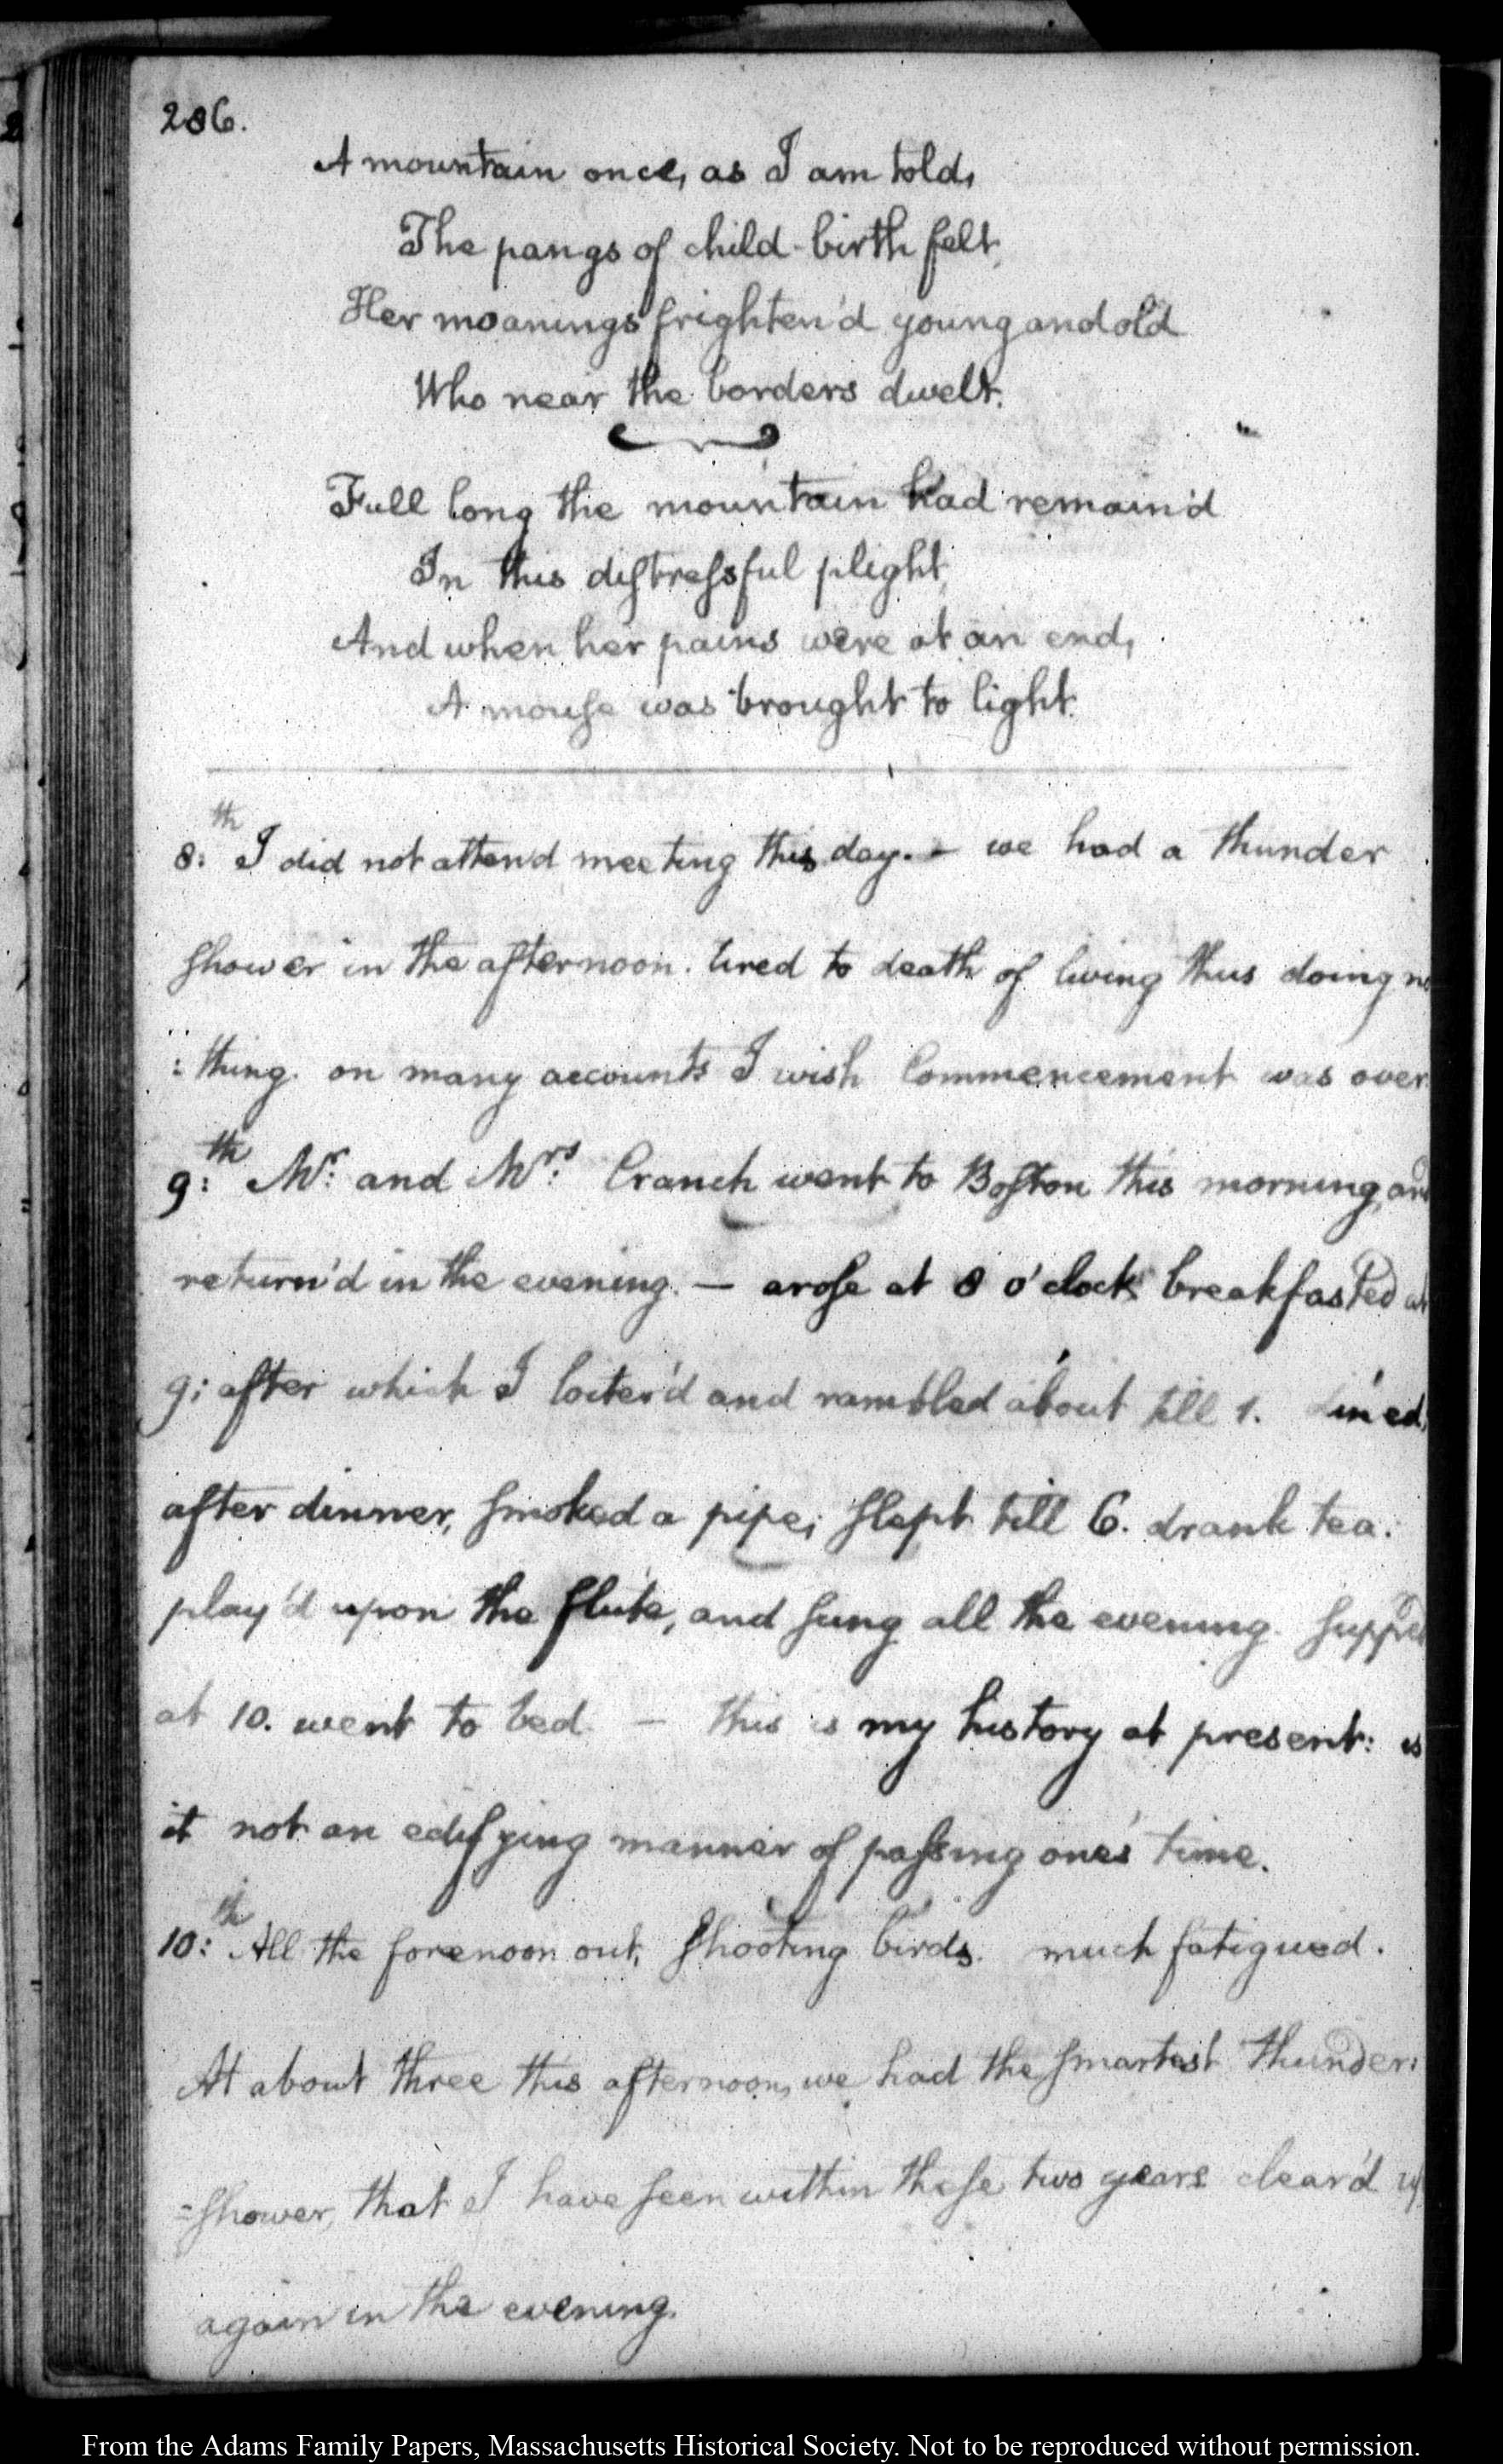 286.
A mountain once, as I am told,
The pangs of child-birth felt,
Her moanings frighten'd young and old
Who near the borders dwelt.
Full long the mountain had remain'd
In this diſtreſsful plight,
And when her pains were at an end,
A mouſe was brought to light.
8:th I did not attend meeting this day. — we had a thunder
ſhower in the afternoon. tired to death of living thus doing no
: thing. on many accounts I wish Commencement was over
9:th Mr: and Mrs: Cranch went to Boſton this morning, and
return'd in the evening. — aroſe at 8 o'clock breakfasted at
9; after which I loiter'd and rambled about till 1. dined,
after dinner, ſmoked a pipe; ſlept till 6. drank tea.
play'd upon the flute, and ſung all the evening. ſupped
at 10. went to bed. — this is my history at present: is
it not an edifying manner of paſsing one's time.
10:th All the forenoon out, ſhooting birds. much fatigued.
At about three this afternoon, we had the ſmartest thunder:
=ſhower, that I have ſeen within theſe two years clear'd up
again in the evening.
From the Adams Family Papers, Massachusetts Historical Society. Not to be reproduced without permission.